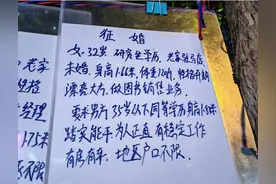 征婚
女，32岁，研究生学历，老家驻马店，
未婚，身高1.66米，体重110斤，性格开朗
漂亮大方，做图书销售业务。
要求男方35岁以下同等学历身高1.75米
踏实能干，为人正直，有稳定工作
有房有车，地区户口不限。
老家
性格
经理
.75米
不限